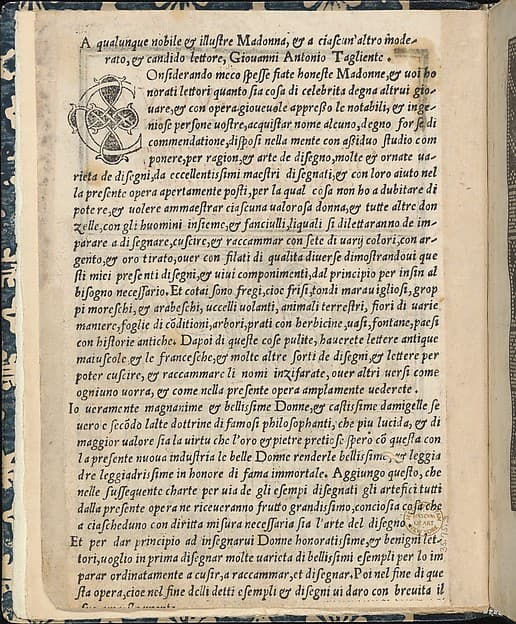 A qualunque nobile & illustre Madonna, & a ciascun'altro mode-
rato, & candido lettore, Giouanni Antonio Tagliente.
COnsiderando meco spesse fiate honeste Madonne, & uoi ho
norati lettori quanto sia cosa di celebrita degna altrui gio-
uare, & con opera gioueuole appresso le notabili, & inge-
niose persone uostre, acquistar nome alcuno, degno forse di
commendatione, disposi nella mente con assiduo studio com
ponere, per ragion, & arte de disegno, molte & ornate ua-
rieta de disegni, da eccellentissimi maestri disegnati, & con loro aiuto nel
la presente opera apertamente posti, per la qual cosa non ho a dubitare di
potere, & uolere ammaestrar ciascuna ualorosa donna, & tutte altre don
zelle, con gli huomini insieme, & fanciulli, liquali si dilettaranno de im-
parare a disegnare, cuscire, & raccammar con sete di uarij colori, con ar-
gento, & oro tirato, ouer con filati di qualita diuerse dimostrandoui que
sti miei presenti disegni, & uiui componimenti, dal principio per insin al
bisogno necessario. Et cotai sono fregi, cioe frisi, tondi marauigliosi, grop
pi moreschi, & arabeschi, uccelli uolanti, animali terrestri, fiori di uarie
maniere, foglie di cõditioni, arbori, prati con herbicine, uasi, fontane, paesi
con historie antiche. Dapoi di queste cose pulite, hauerete lettere antique
maiuscole & le francesche, & molte altre sorti de disegni, & lettere per
poter cuscire, & raccammare li nomi inzifarate, ouer altri uersi come
ogniuno uorra, & come nella presente opera amplamente uederete.
Io ueramente magnanime & bellissime Donne, & castissime damigelle se
uero e secõdo lalte dottrine di famosi philosophanti, che piu lucida, & di
maggior ualore sia la uirtu che l'oro & pietre pretiose spero cõ questa con
la presente nuoua industria le belle Donne renderle bellissime, & leggia
dre leggiadrissime in honore di fama immortale. Aggiungo questo, che
nelle susseguente charte per uia de gli esempi disegnati gli artefici tutti
dalla presente opera ne riceueranno frutto grandissimo, conciosia cosa che
a ciascheduno con diritta misura necessaria sia l'arte del disegno.
Et per dar principio ad insegnarui Donne honoratissime, & benigni let-
tori, uoglio in prima disegnar molte uarieta di bellissimi esempli per lo im
parar ordinatamente a cusir, a raccammar, et disegnar. Poi nel fine di que
sta opera, cioe nel fine delli detti esempli & disegni ui daro con breuita il